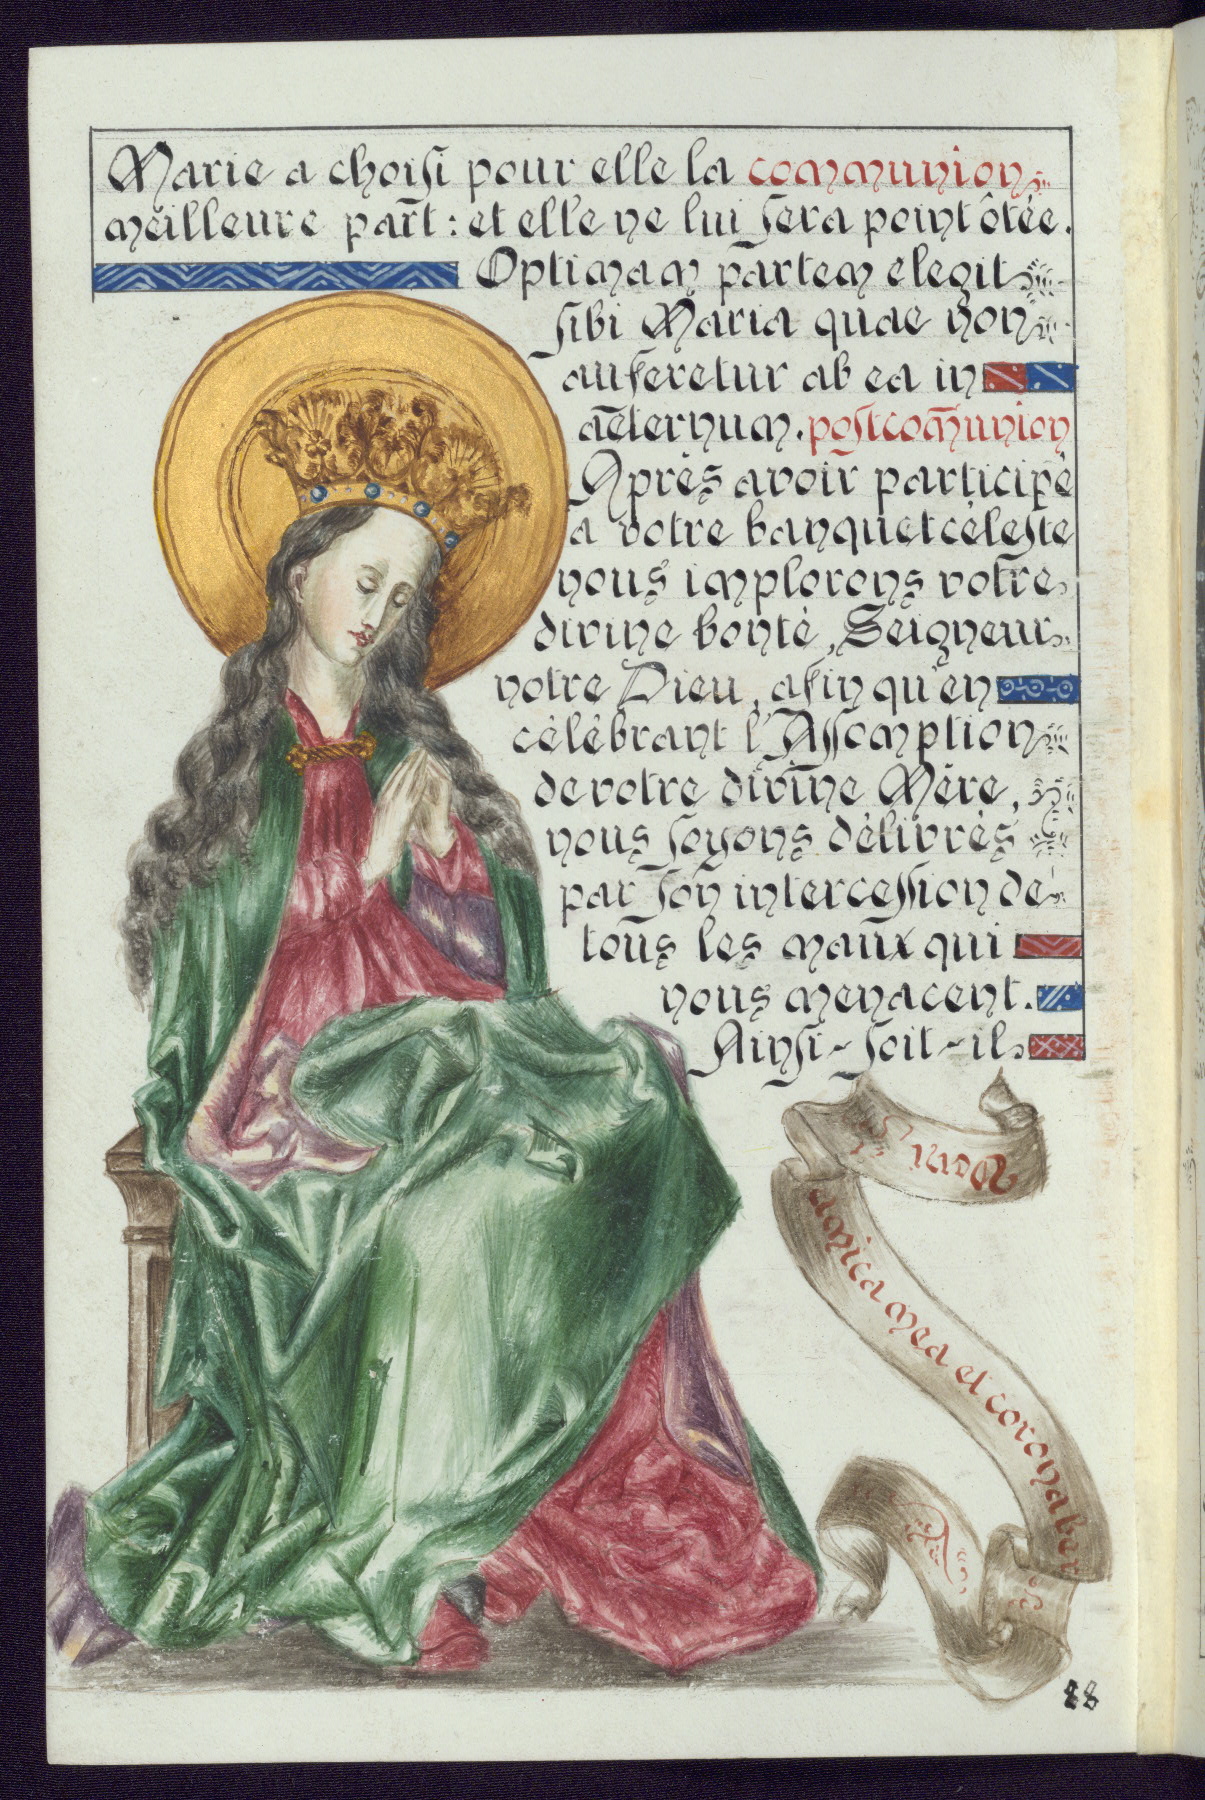 Marie a choisi pour elle la communion
meilleure part : et elle ne lui sera point ôtée.
Optimam partem elegit
sibi Maria quae non
auferetur ab ea in
aeternum. postcom̄union
Après avoir participé
à votre banquet céleste
nous implorons votre
divine bonté, Seigneur
notre Dieu, afin qu'en
célébrant l'Assomption
de votre divine Mère,
nous soyons délivrés
par son intercession de
tous les maux qui
nous menacent.
Ainsi-soit-il
Veni
amica mea et coronaber
88